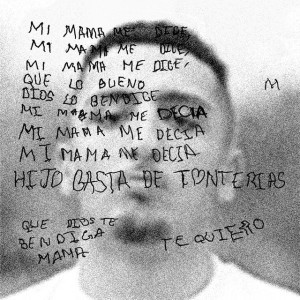 MI MAMA ME DICE,
MI MAMA ME DICE,
MI MAMA ME DICE,
QUE LO BUENO
DIOS LO BENDICE
M
MI MAMA ME DECIA
MI MAMA ME DECIA
MI MAMA ME DECIA
HIJO BASTA DE TONTERIAS
QUE DIOS TE
BENDIGA
MAMA
TE QUIERO